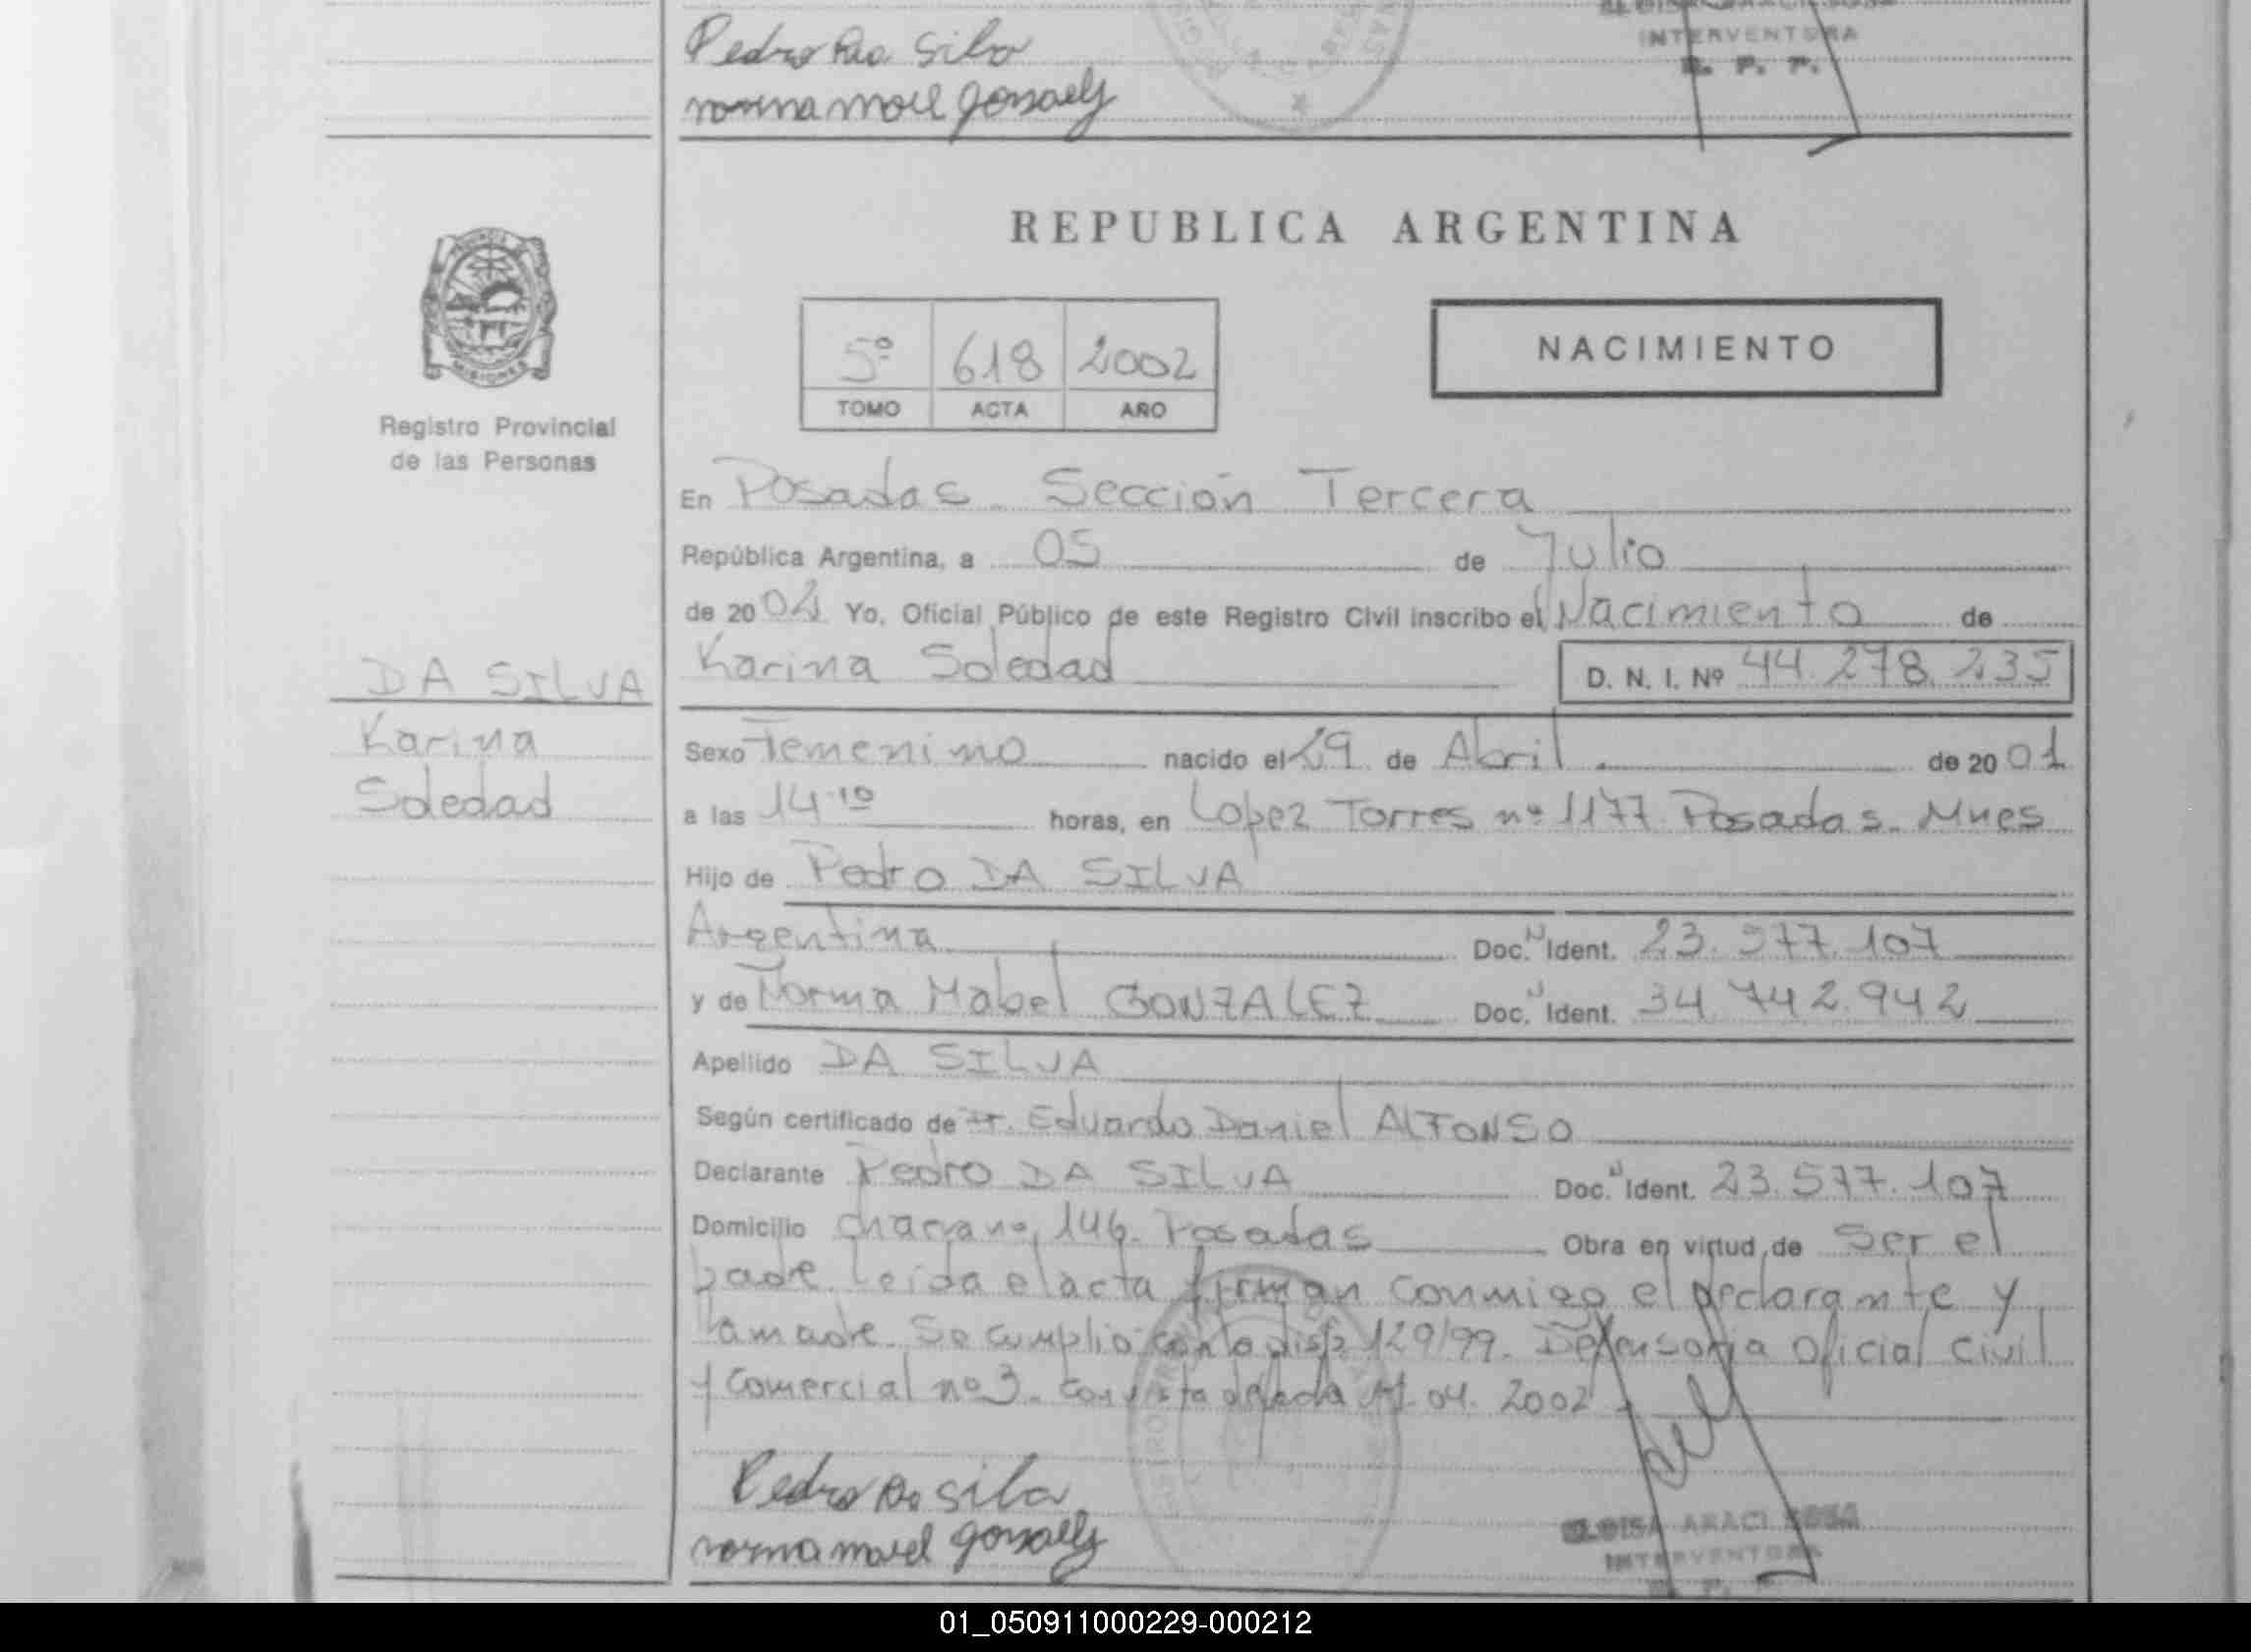 Pedro Da Silva
norma mavel gonsalez
INTERVENTORA
R. P. P.
REPUBLICA ARGENTINA
5º 618 2002
TOMO ACTA AÑO
NACIMIENTO
MISIONES
Registro Provincial
de las Personas
En Posadas - Sección Tercera
República Argentina, a 05 de Julio
de 2002 Yo, Oficial Público de este Registro Civil inscribo el Nacimiento de
Karina Soledad D. N. I. Nº 44.278.235
DA SILVA
Karina
Soledad
Sexo Femenino nacido el 29 de Abril de 2001
a las 14.10 horas, en Lopez Torres nº 1177 Posadas. Mnes
Hijo de Pedro DA SILVA
Argentina Doc. N Ident. 23.577.107
y de Norma Mabel GONZALEZ Doc. N Ident. 34.742.942
Apellido DA SILVA
Según certificado de Dr. Eduardo Daniel ALFONSO
Declarante Pedro DA SILVA Doc. N Ident. 23.577.107
Domicilio chacra nº 146. Posadas Obra en virtud de Ser el
padre. Leida el acta firman conmigo el declarante y
la madre. Se cumplió con la disp. 129/99. Defensoria Oficial Civil
y Comercial nº 3. con vista de fecha 04. 2002
Pedro Da Silva
norma mavel gonsalez
ELOISA ARACI SOSA
INTERVENTORA
R. P. P.
01_050911000229-000212